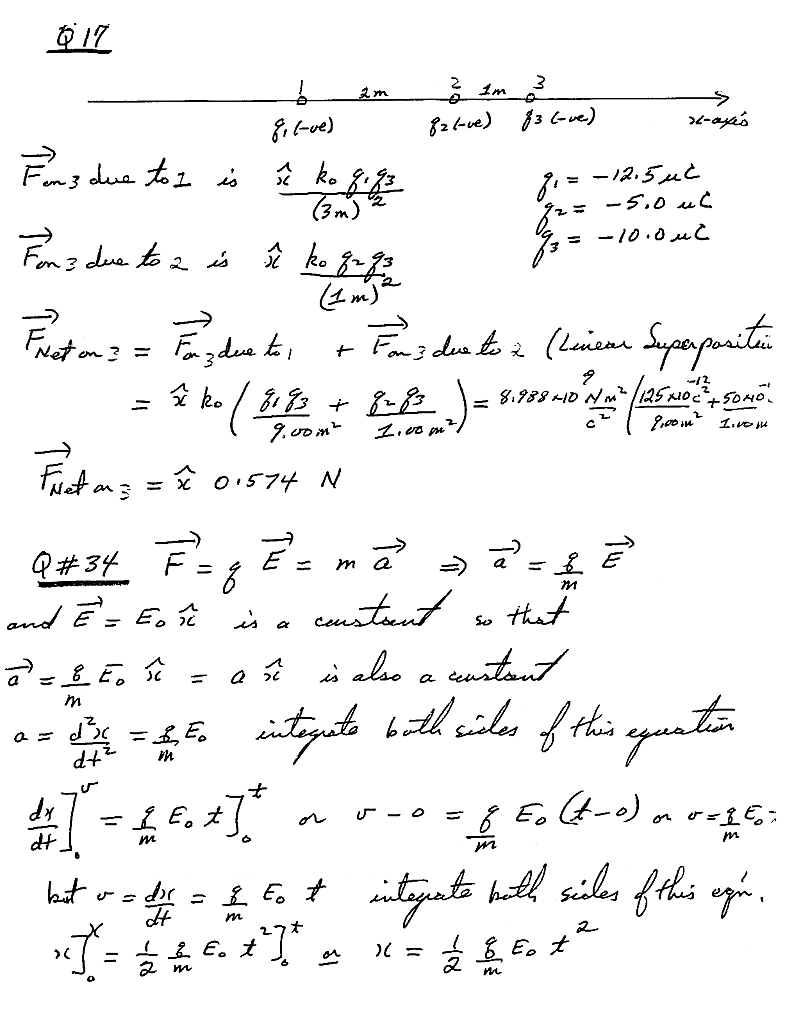 Q 17
1 2m 2 1m 3
q₁(-ve) q₂(-ve) q₃(-ve) x-axis
F⃗ on 3 due to 1 is x̂ k₀ q₁q₃ / (3m)²
q₁ = -12.5 μC
q₂ = -5.0 μC
q₃ = -10.0 μC
F⃗ on 3 due to 2 is x̂ k₀ q₂q₃ / (1m)²
F⃗ Net on 3 = F⃗ on 3 due to 1 + F⃗ on 3 due to 2 (Linear Superpositi
= x̂ k₀ (q₁q₃ / 9.00m² + q₂q₃ / 1.00m²) = 8.988×10⁹ N m²/C² (125×10⁻¹²C² / 9.00m² + 50×10⁻¹ / 1.00m
F⃗ Net on 3 = x̂ 0.574 N
Q#34 F⃗ = q E⃗ = m a⃗ ⇒ a⃗ = q/m E⃗
and E⃗ = E₀ x̂ is a constant so that
a⃗ = q/m E₀ x̂ = a x̂ is also a constant
a = d²x/dt² = q/m E₀ integrate both sides of this equation
dx/dt]₀ᵛ = q/m E₀ t]₀ᵗ or v - 0 = q/m E₀ (t-0) or v = q/m E₀
but v = dx/dt = q/m E₀ t integrate both sides of this eqn.
x]₀ˣ = 1/2 q/m E₀ t²]₀ᵗ or x = 1/2 q/m E₀ t²